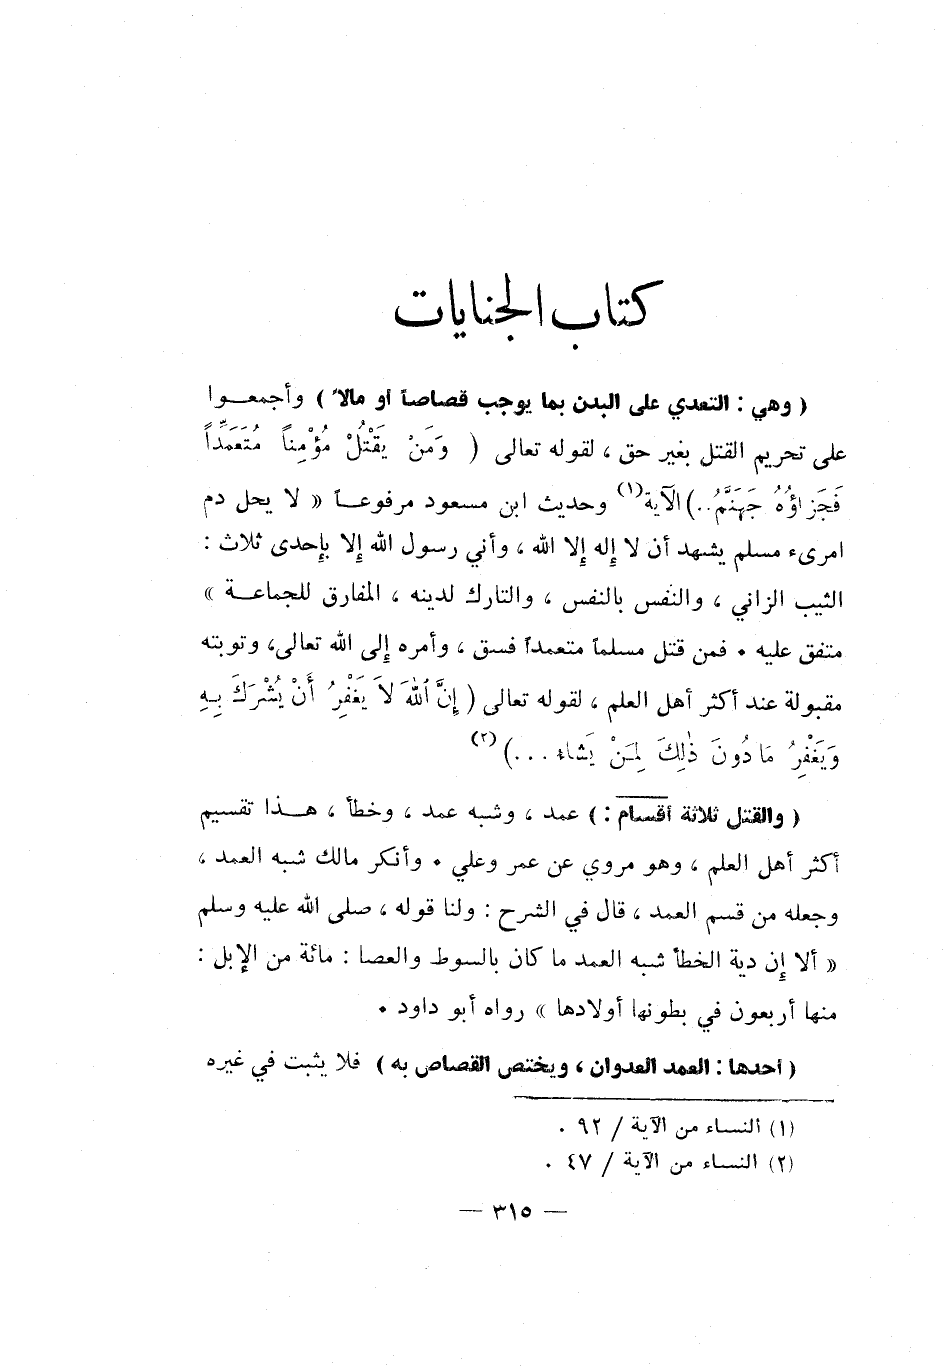 كتاب الجنايات
( وهي : التعدي على البدن بما يوجب قصاصاً أو مالاً ) وأجمعـــوا
على تحريم القتل بغير حق ، لقوله تعالى ( وَمَنْ يَقْتُلْ مُؤْمِناً مُتَعَمِّداً
فَجَزاؤُهُ جَهَنَّمُ..) الآية(١) وحديث ابن مسعود مرفوعـــاً « لا يحل دم
امرىء مسلم يشهد أن لا إله إلا الله ، وأني رسول الله إلا بإحدى ثلاث :
الثيب الزاني ، والنفس بالنفس ، والتارك لدينه ، المفارق للجماعـــة »
متفق عليه • فمن قتل مسلماً متعمداً فسق ، وأمره إلى الله تعالى، وتوبته
مقبولة عند أكثر أهل العلم ، لقوله تعالى ( إِنَّ ٱللَّهَ لاَ يَغْفِرُ أَنْ يُشْرَكَ بِهِ
وَيَغْفِرُ مَا دُونَ ذٰلِكَ لِمَنْ يَشاء ...)(٢)
( والقتل ثلاثة أقسام : ) عمد ، وشبه عمد ، وخطأ ، هـــذا تقسيم
أكثر أهل العلم ، وهو مروي عن عمر وعلي • وأنكر مالك شبه العمد ،
وجعله من قسم العمد ، قال في الشرح : ولنا قوله ، صلى الله عليه وسلم
« ألا إن دية الخطأ شبه العمد ما كان بالسوط والعصا : مائة من الإبل :
منها أربعون في بطونها أولادها » رواه أبو داود •
( أحدها : العمد العدوان ، ويختص القصاص به ) فلا يثبت في غيره
(١) النساء من الآية / ٩٢ .
(٢) النساء من الآية / ٤٧ .
— ٣١٥ —